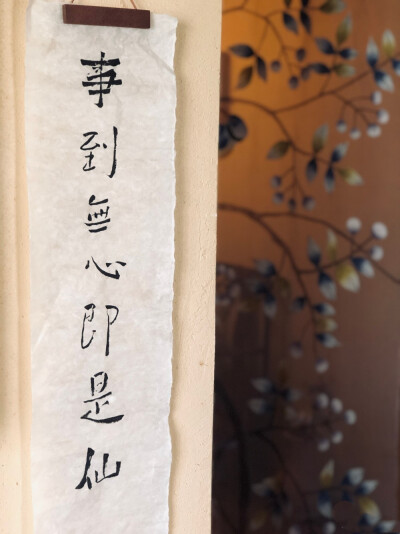 事到無心即是仙